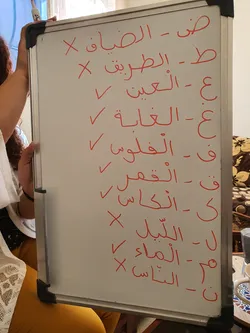 ض - الضاف ×
ط - الطريق ×
ع - الْعين ✓
غ - الغابة ✓
ف - الْفلوس ✓
ق - الْقمر ✓
ك - الْكاس ✓
ل - اللّيل ×
م - الْماء ✓
ن - النّاس ×